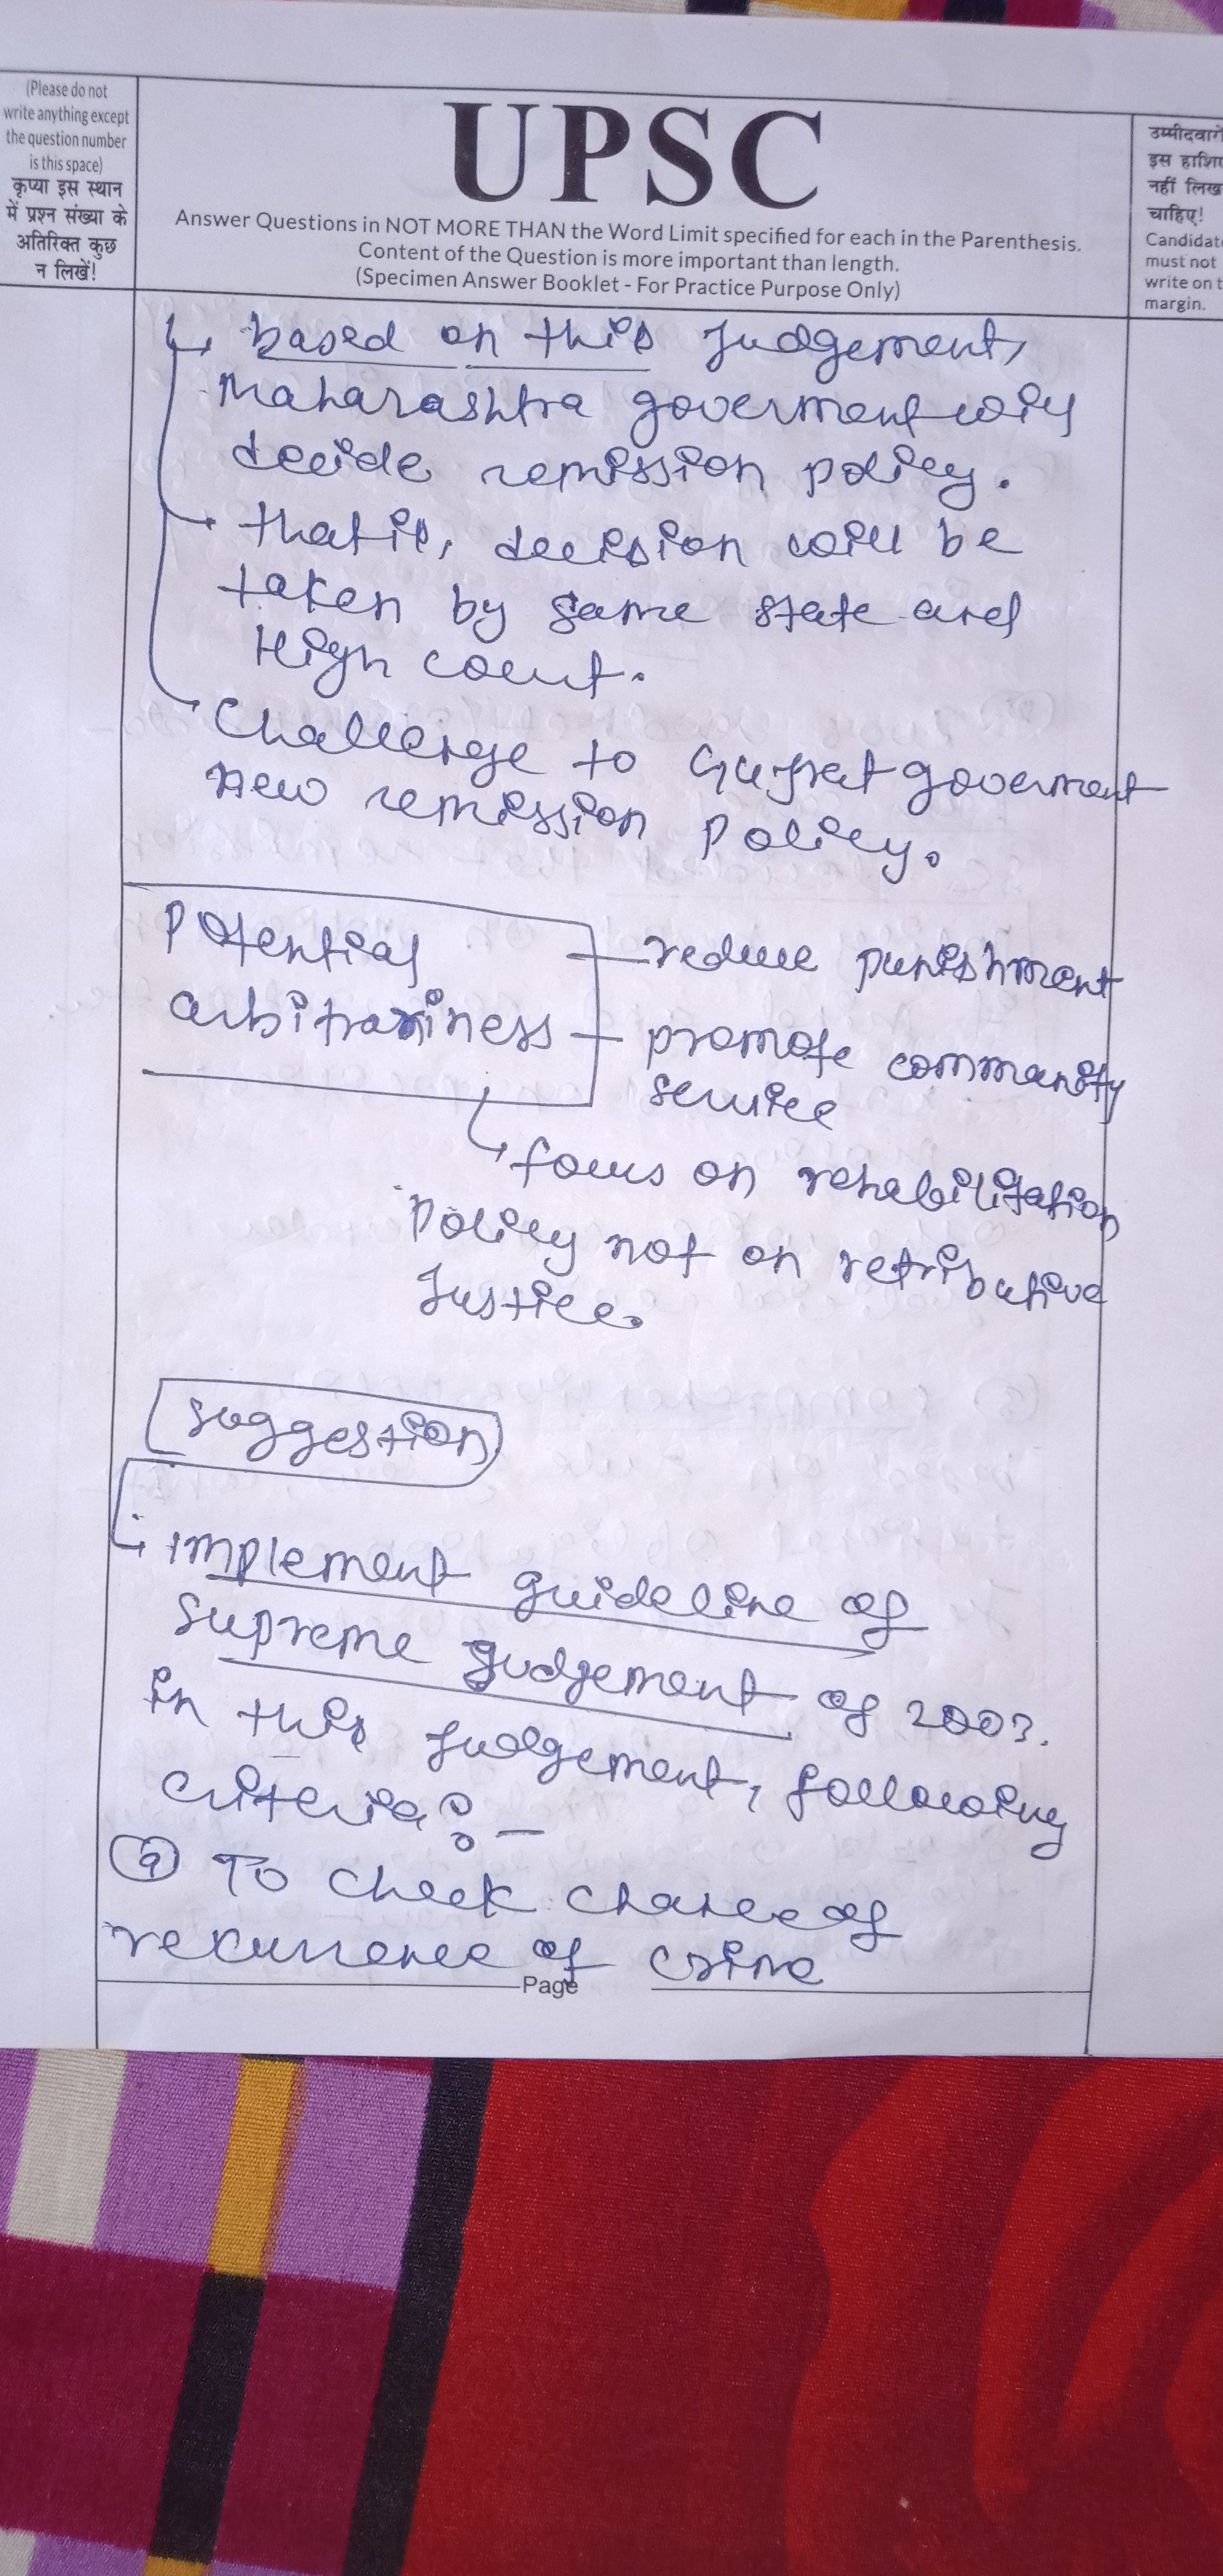 (Please do not
write anything except
the question number
is this space)
कृप्या इस स्थान
में प्रश्न संख्या के
अतिरिक्त कुछ
न लिखें!
UPSC
Answer Questions in NOT MORE THAN the Word Limit specified for each in the Parenthesis.
Content of the Question is more important than length.
(Specimen Answer Booklet - For Practice Purpose Only)
उम्मीदवारों
इस हाशि
नहीं लिख
चाहिए!
Candidate
must not
write on t
margin.
based on this Judgement,
Maharashtra goverment will
decide remission policy.
that is, decision will be
taken by same state and
High court.
Challenge to Gujrat goverment
new remission policy.
Potential
arbitrariness
reduce punishment
promote community
service
focus on rehabilitation
policy not on retributive
Justice.
Suggestion
Implement guideline of
Supreme judgement of 2003.
in this judgement, following
criteria:-
To check chance of
recurrence of crime
Page